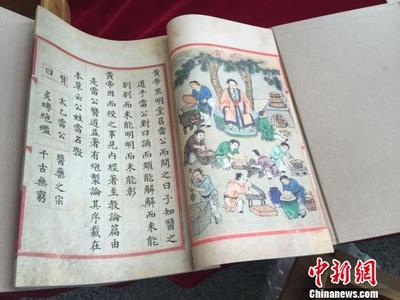 黃帝坐明堂召雷公而問之曰子知醫之
道乎雷公對曰誦而頗能解解而未能
別別而未能明明而未能彰
黃帝因而授之事見內經著至教論篇由
是雷公醫道益著有炮製論其序載在
本草云公姓雷名斆
贊 太乙雷公 醫藥之宗
曰 炙煿炮爁 千古無窮
中新網
Chinanews.com